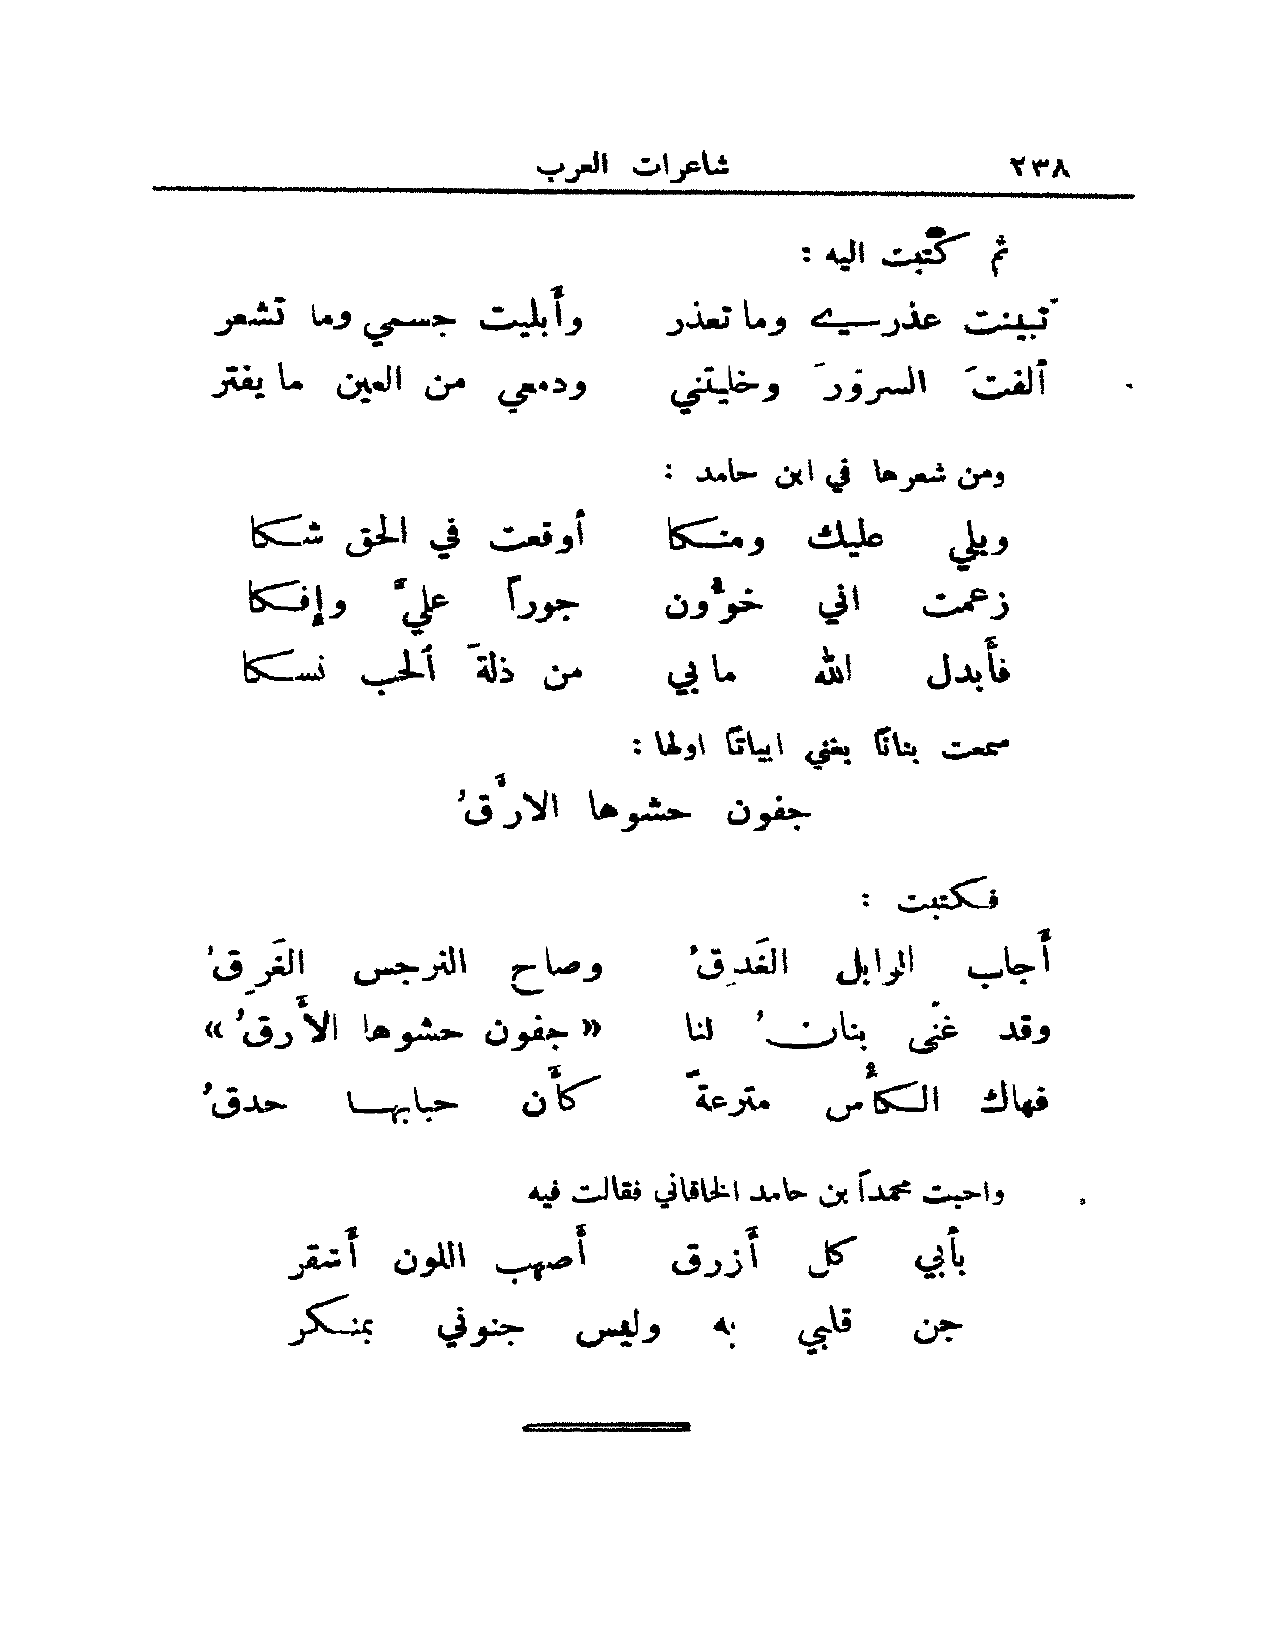 ٢٣٨ شاعرات العرب
ثم كتبت اليه :
تبينت عذري وما تعذر وأبليت جسمي وما تشعر
ألفتَ السرورَ وخليتني ودمعي من العين ما يفتر
ومن شعرها في ابن حامد :
ويلي عليك ومنكا أوقعت في الحق شكا
زعمت اني خؤون جوراً عليَّ وإفكا
فأبدل الله ما بي من ذلة ألحب نسكا
سمعت بنانًا يغني ابياتًا اولها :
جفون حشوها الارَّقُ
فكتبت :
أجاب الوابل الغَدِقُ وصاح النرجس الغَرِقُ
وقد غنى بنانُ لنا « جفون حشوها الأرقُ »
فهاك الكأس مترعةً كأن حبابها حدقُ
واحبت محمداً بن حامد الخاقاني فقالت فيه
بأبي كل أزرق أصهب اللون أشقر
جن قلبي به وليس جنوني بمنكر